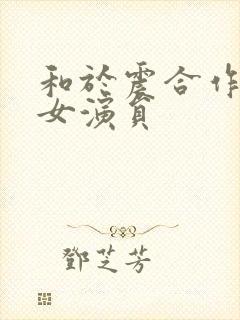 和於震合作
女演員
鄧芝芳